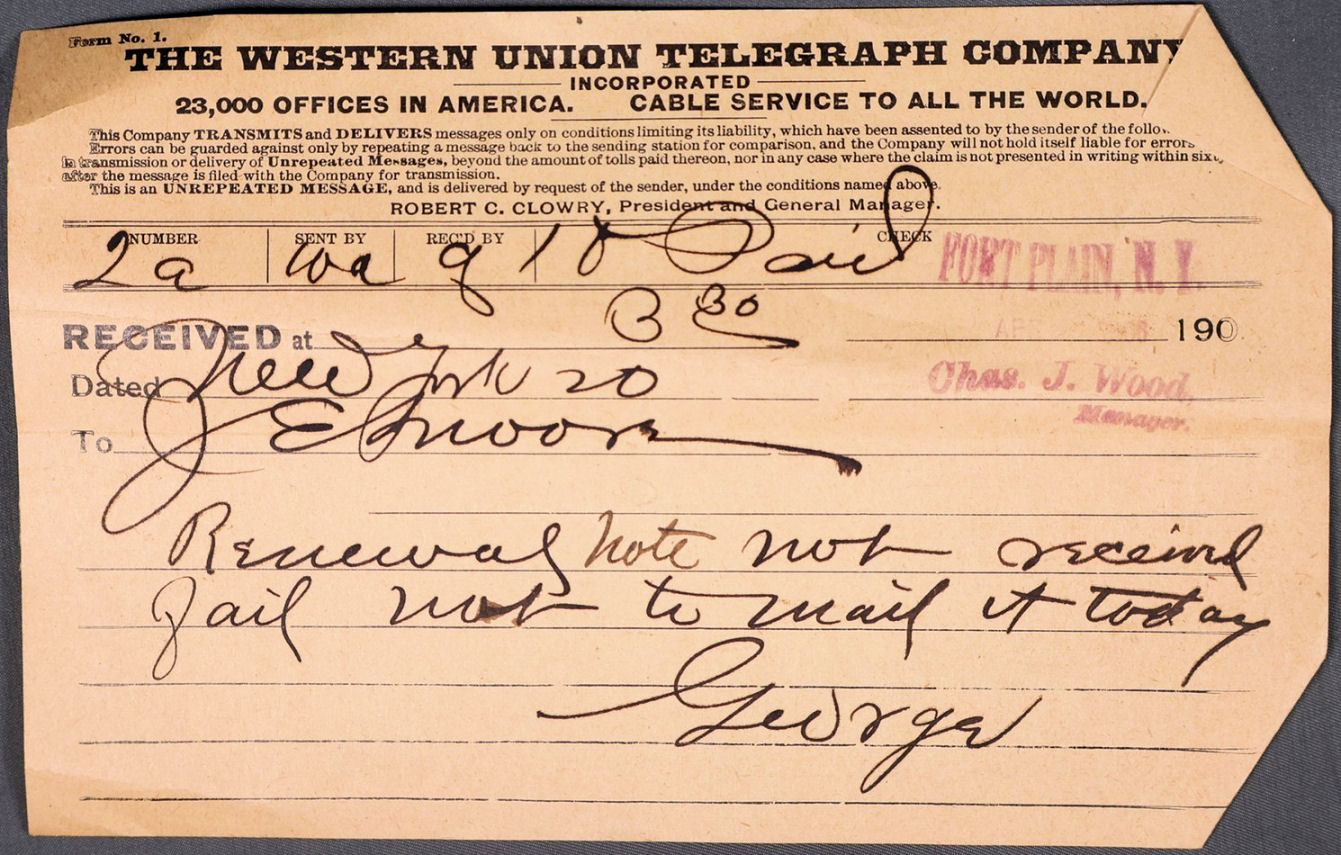 Form No. 1.
THE WESTERN UNION TELEGRAPH COMPANY
INCORPORATED
23,000 OFFICES IN AMERICA. CABLE SERVICE TO ALL THE WORLD.
This Company TRANSMITS and DELIVERS messages only on conditions limiting its liability, which have been assented to by the sender of the
Errors can be guarded against only by repeating a message back to the sending station for comparison, and the Company will not hold itself liable for errors
in transmission or delivery of Unrepeated Messages, beyond the amount of tolls paid thereon, nor in any case where the claim is not presented in writing within
after the message is filed with the Company for transmission.
This is an UNREPEATED MESSAGE, and is delivered by request of the sender, under the conditions named above.
ROBERT C. CLOWRY, President and General Manager.
NUMBER SENT BY REC'D BY CHECK
2a wa g 10 Paid
FORT PLAIN, N. Y.
B 30
RECEIVED at 190
Dated New York 20
Chas. J. Wood,
Manager.
To J E Moore
Renewal note not received
fail not to mail it today
George